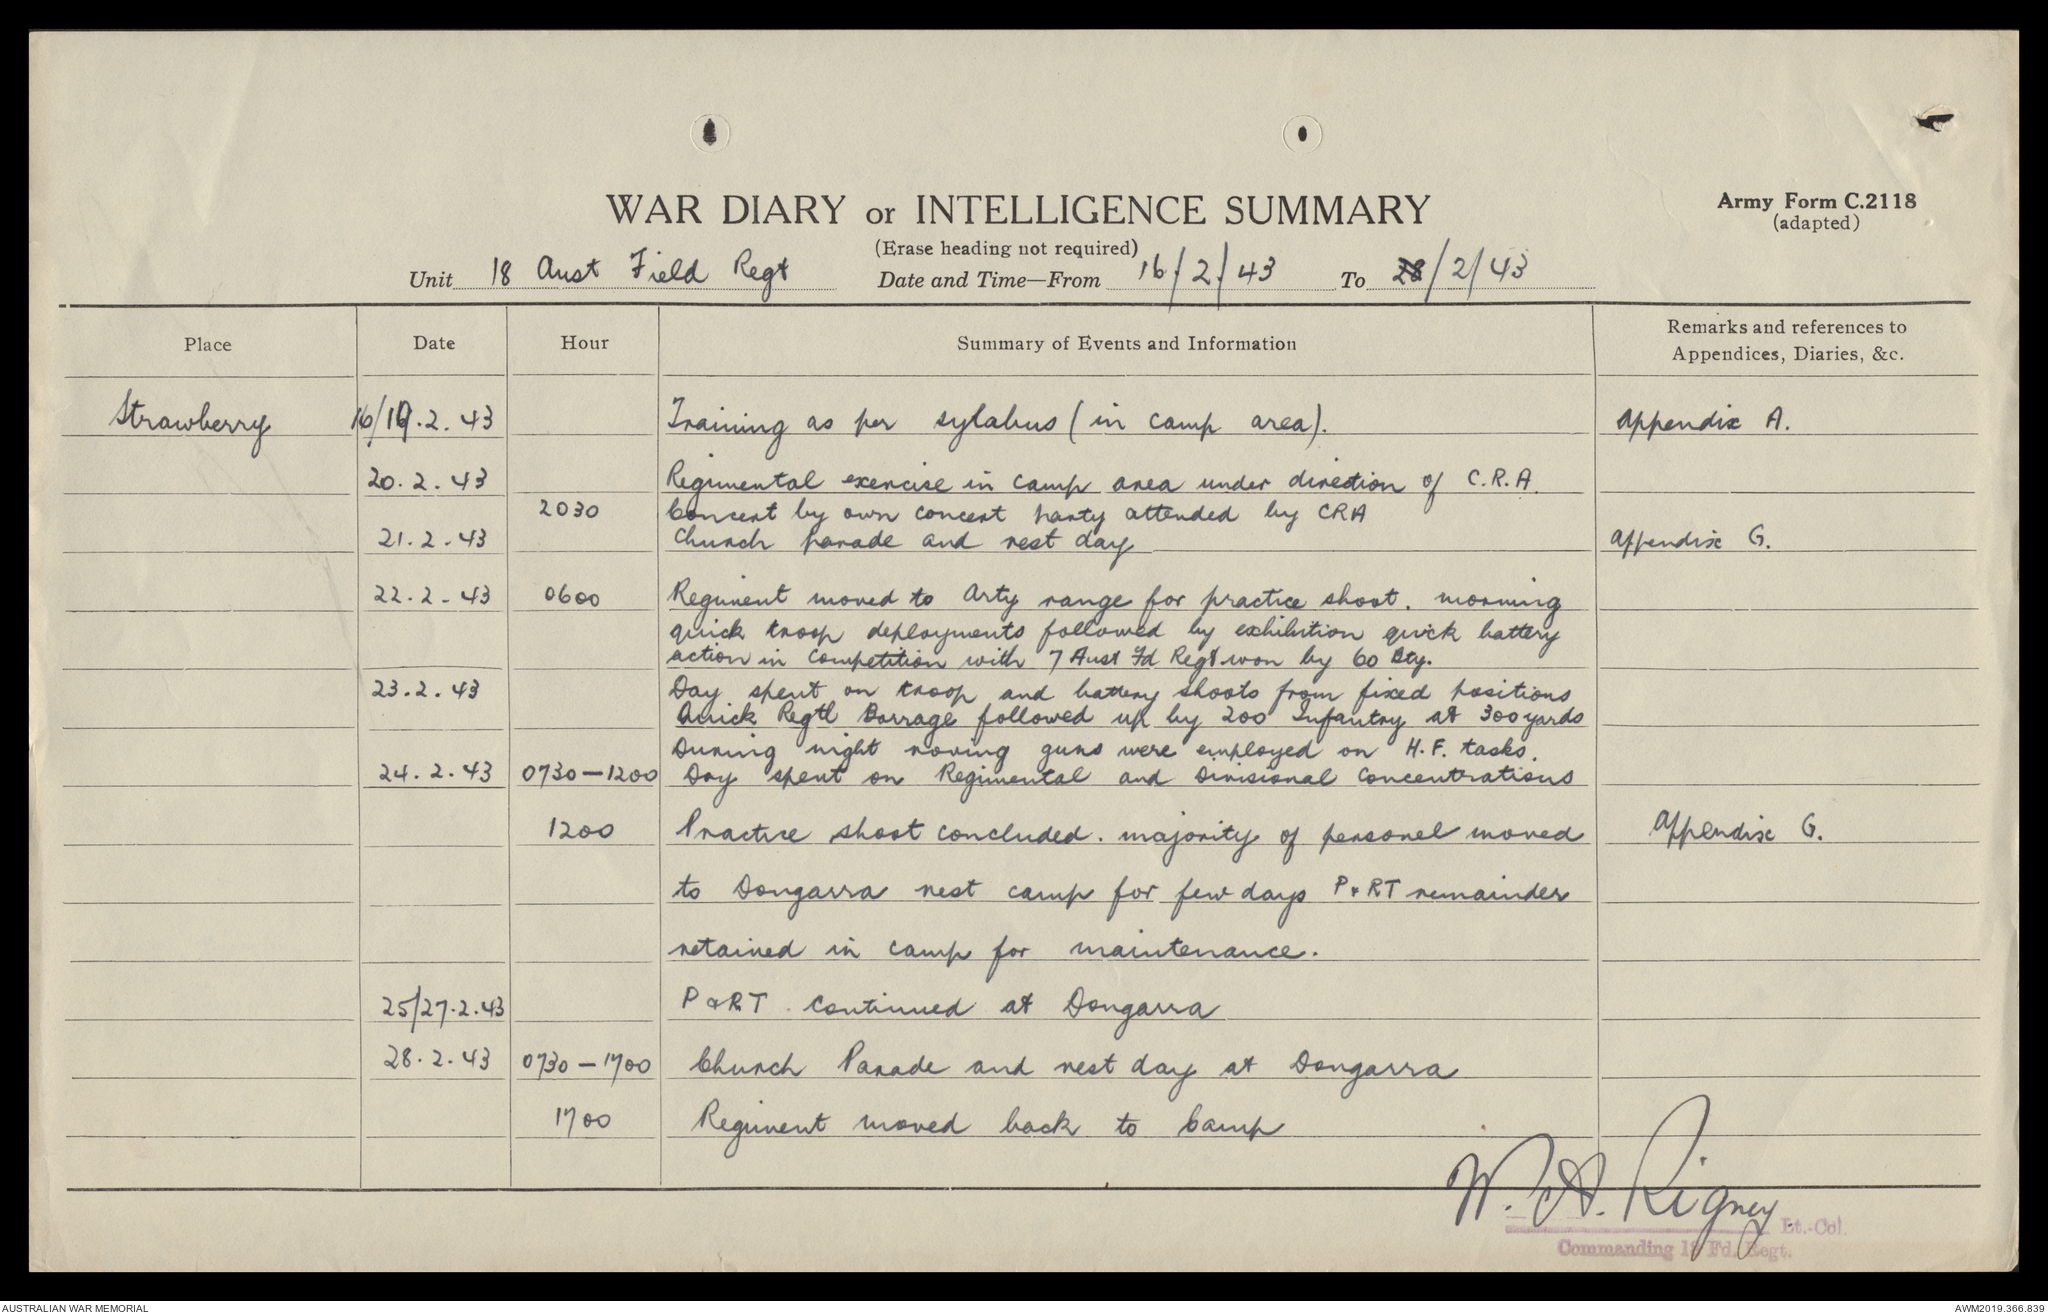 WAR DIARY or INTELLIGENCE SUMMARY
Army Form C.2118
(adapted)
(Erase heading not required)
Unit 18 Aust Field Regt Date and Time—From 16/2/43 To 28/2/43
Place Date Hour Summary of Events and Information Remarks and references to
Appendices, Diaries, &c.
Strawberry 16/19.2.43 Training as per sylabus (in camp area). Appendix A.
20.2.43 Regimental exercise in camp area under direction of C.R.A.
2030 Concert by own concert party attended by CRA
21.2.43 Church parade and rest day Appendix G.
22.2.43 0600 Regiment moved to Arty range for practice shoot. morning
quick troop deployments followed by exhibition quick battery
action in competition with 7 Aust Fd Regt won by 60 Bty.
23.2.43 Day spent on troop and battery shoots from fixed positions
Quick Regtl Barrage followed up by 200 Infantry at 300 yards
During night roving guns were employed on H.F. tasks.
24.2.43 0730—1200 Day spent on Regimental and Divisional concentrations
1200 Practice shoot concluded. majority of personel moved Appendix G.
to Dongarra rest camp for few days P & RT remainder
retained in camp for maintenance.
25/27.2.43 P & RT continued at Dongarra
28.2.43 0730—1700 Church Parade and rest day at Dongarra
1700 Regiment moved back to Camp
W. A. Rigney
Lt.-Col.
Commanding 18 Fd. Regt.
AUSTRALIAN WAR MEMORIAL
AWM2019.366.839